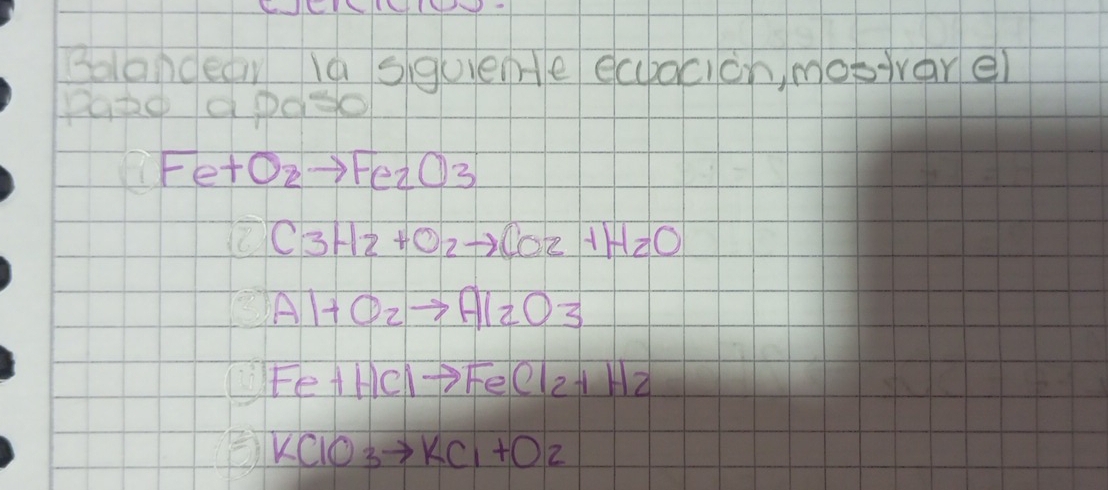 ejercicios.
Balancear la siguiente ecuación, mostrar el
paso a paso
① Fe+O2→Fe2O3
② C3H2 +O2→CO2 +H2O
③ Al+O2→Al2O3
④ Fe+HCl→FeCl2+H2
⑤ KClO3→KCl+O2